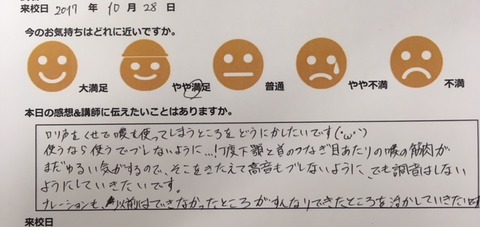 来校日 2017 年 10 月 28 日
今のお気持ちはどれに近いですか。
大満足 やや満足 普通 やや不満 不満
本日の感想&講師に伝えたいことはありますか。
ロリ声をくせで喉も使ってしまうところをどうにかしたいです(´・ω・`)
使うなら使うでブレないように…!丁度下顎と首のつなぎ目あたりの喉の筋肉が
まだゆるい気がするので、そこをきたえて高音もブレないように、でも はしない
ようにしていきたいです。
ナレーションも、以前はできなかったところがすんなりできたところを活かしていきたいです
来校日